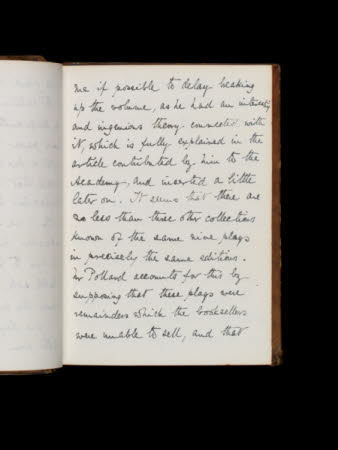 me if possible to delay breaking
up the volume, as he had an interesting
and ingenious theory connected with
it, which is fully explained in the
article contributed by him to the
Academy, and inserted a little
later on. It seems that there are
no less than three other collections
known of the same nine plays
in precisely the same editions.
Mr Pollard accounts for this by
supposing that these plays were
remainders which the booksellers
were unable to sell, and that